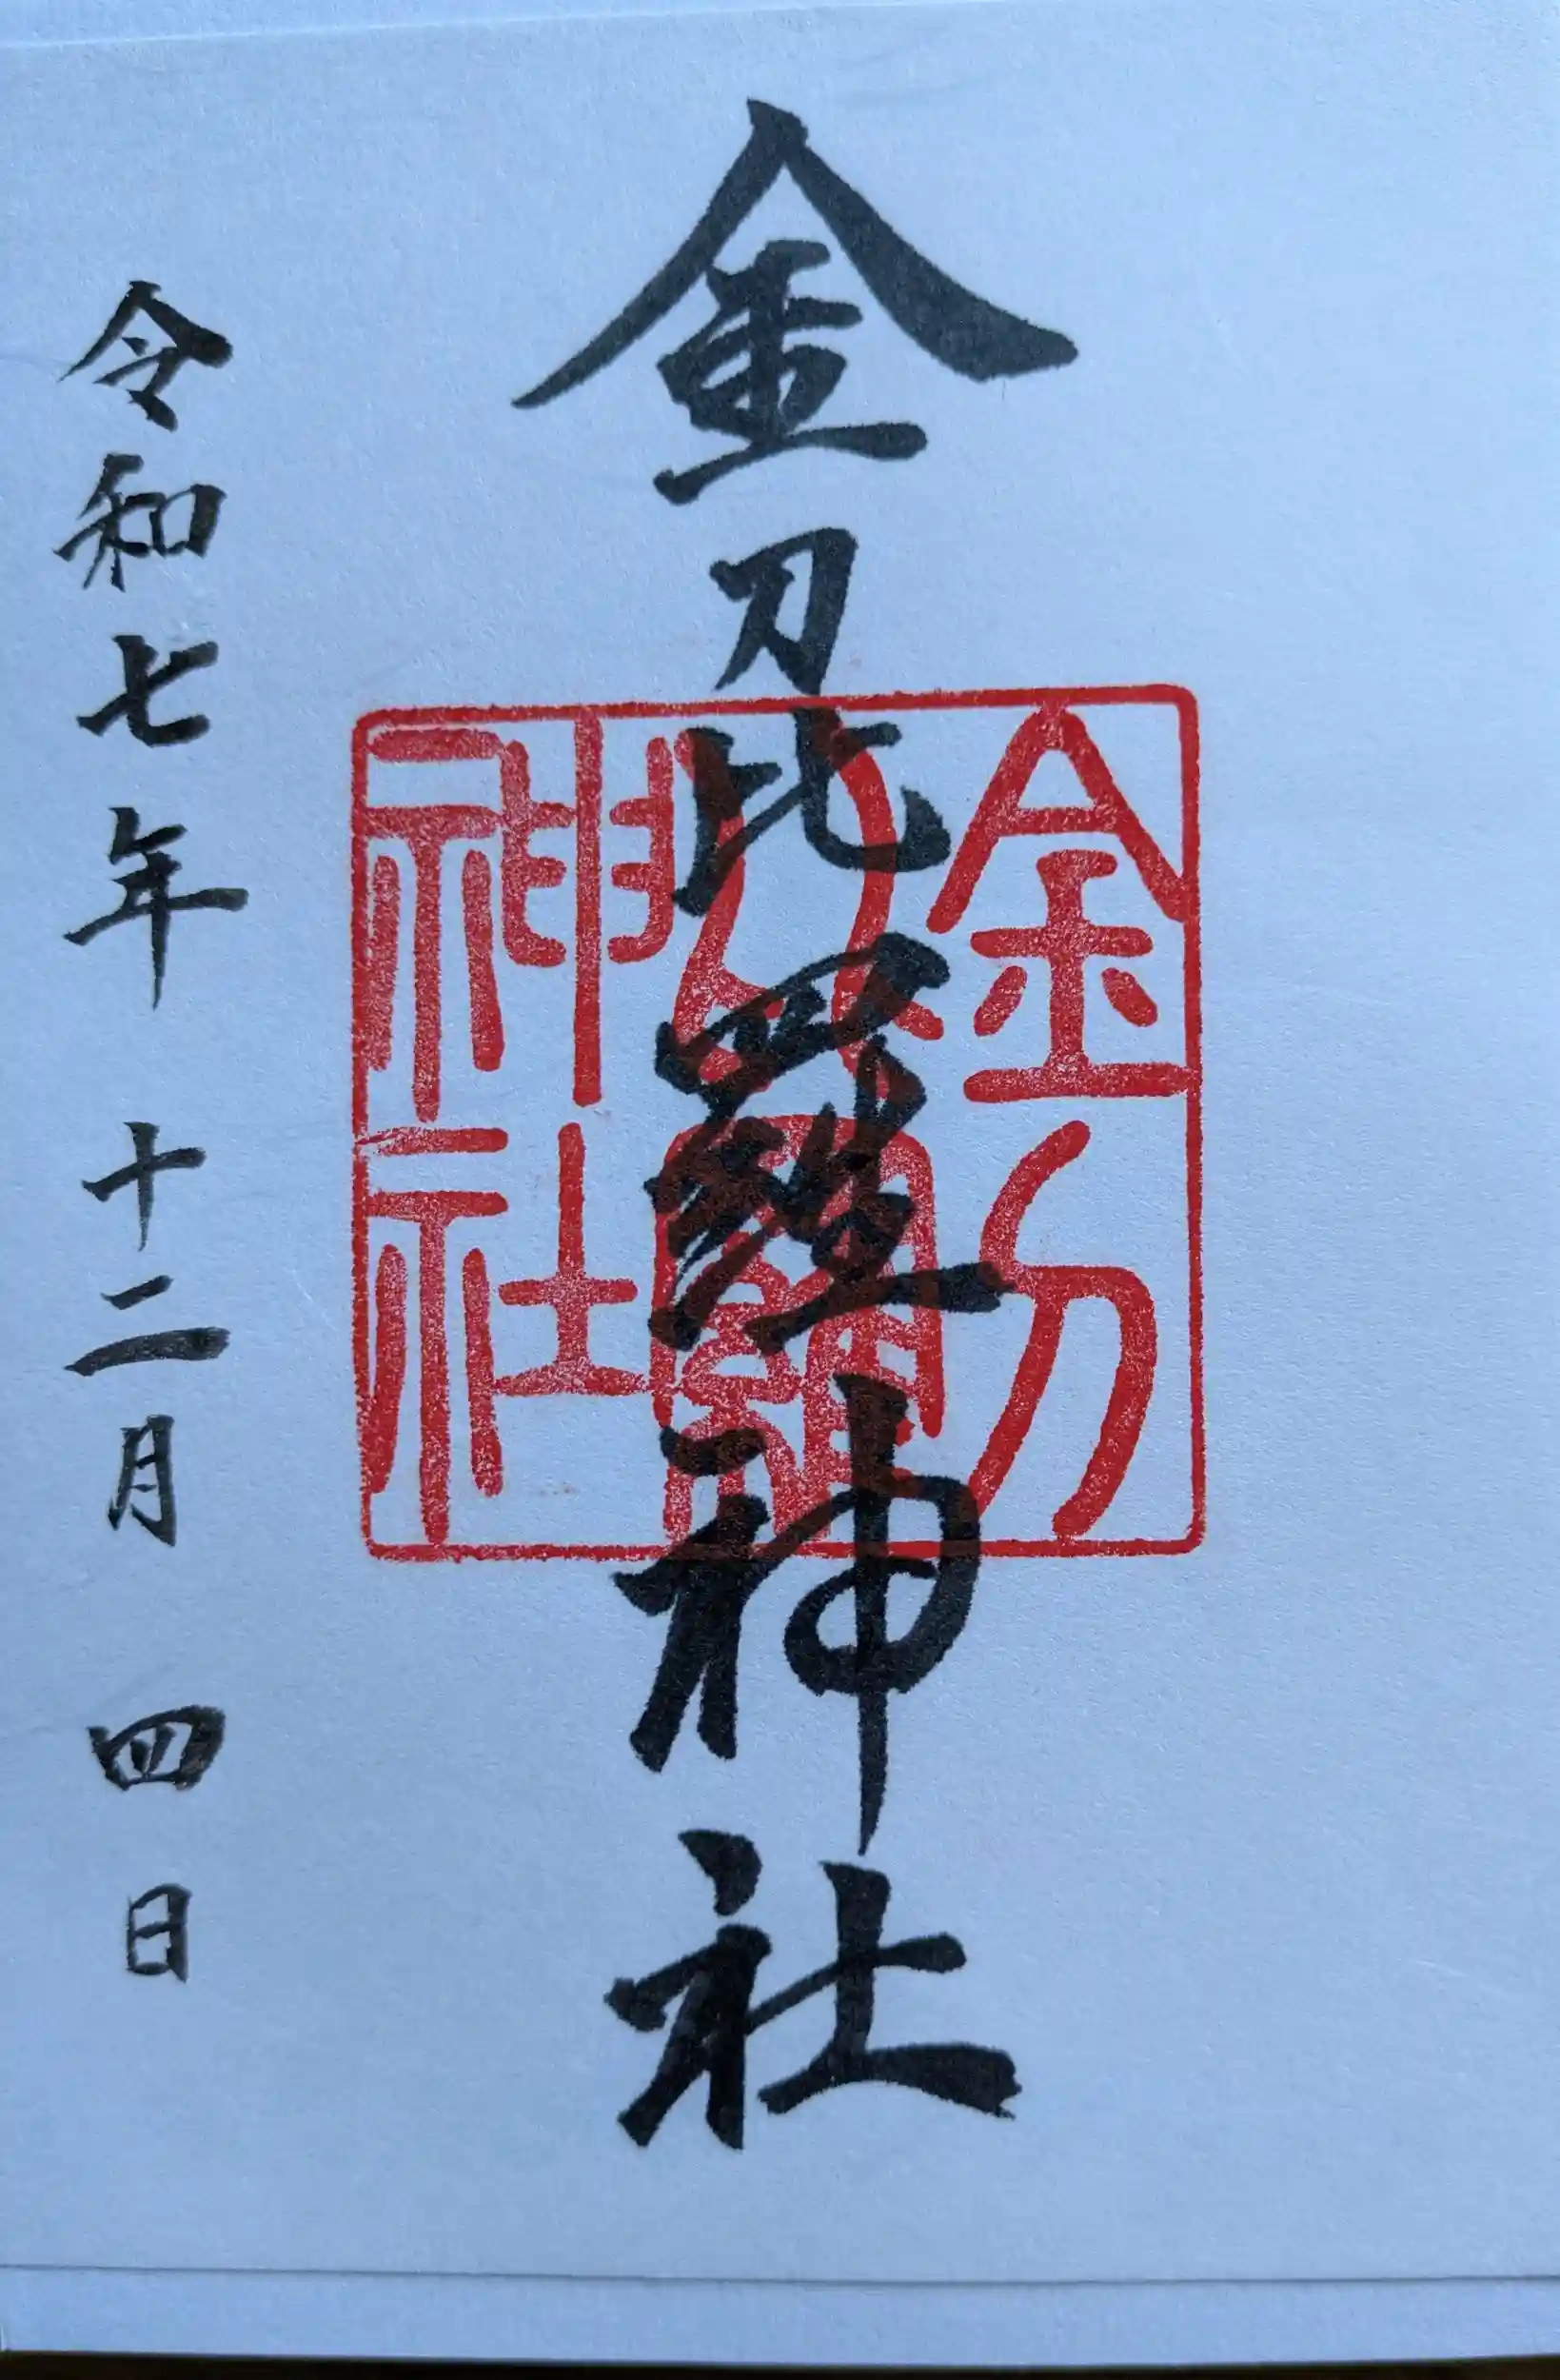 金刀比羅神社
金刀比羅神社
令和七年 十二月 四日